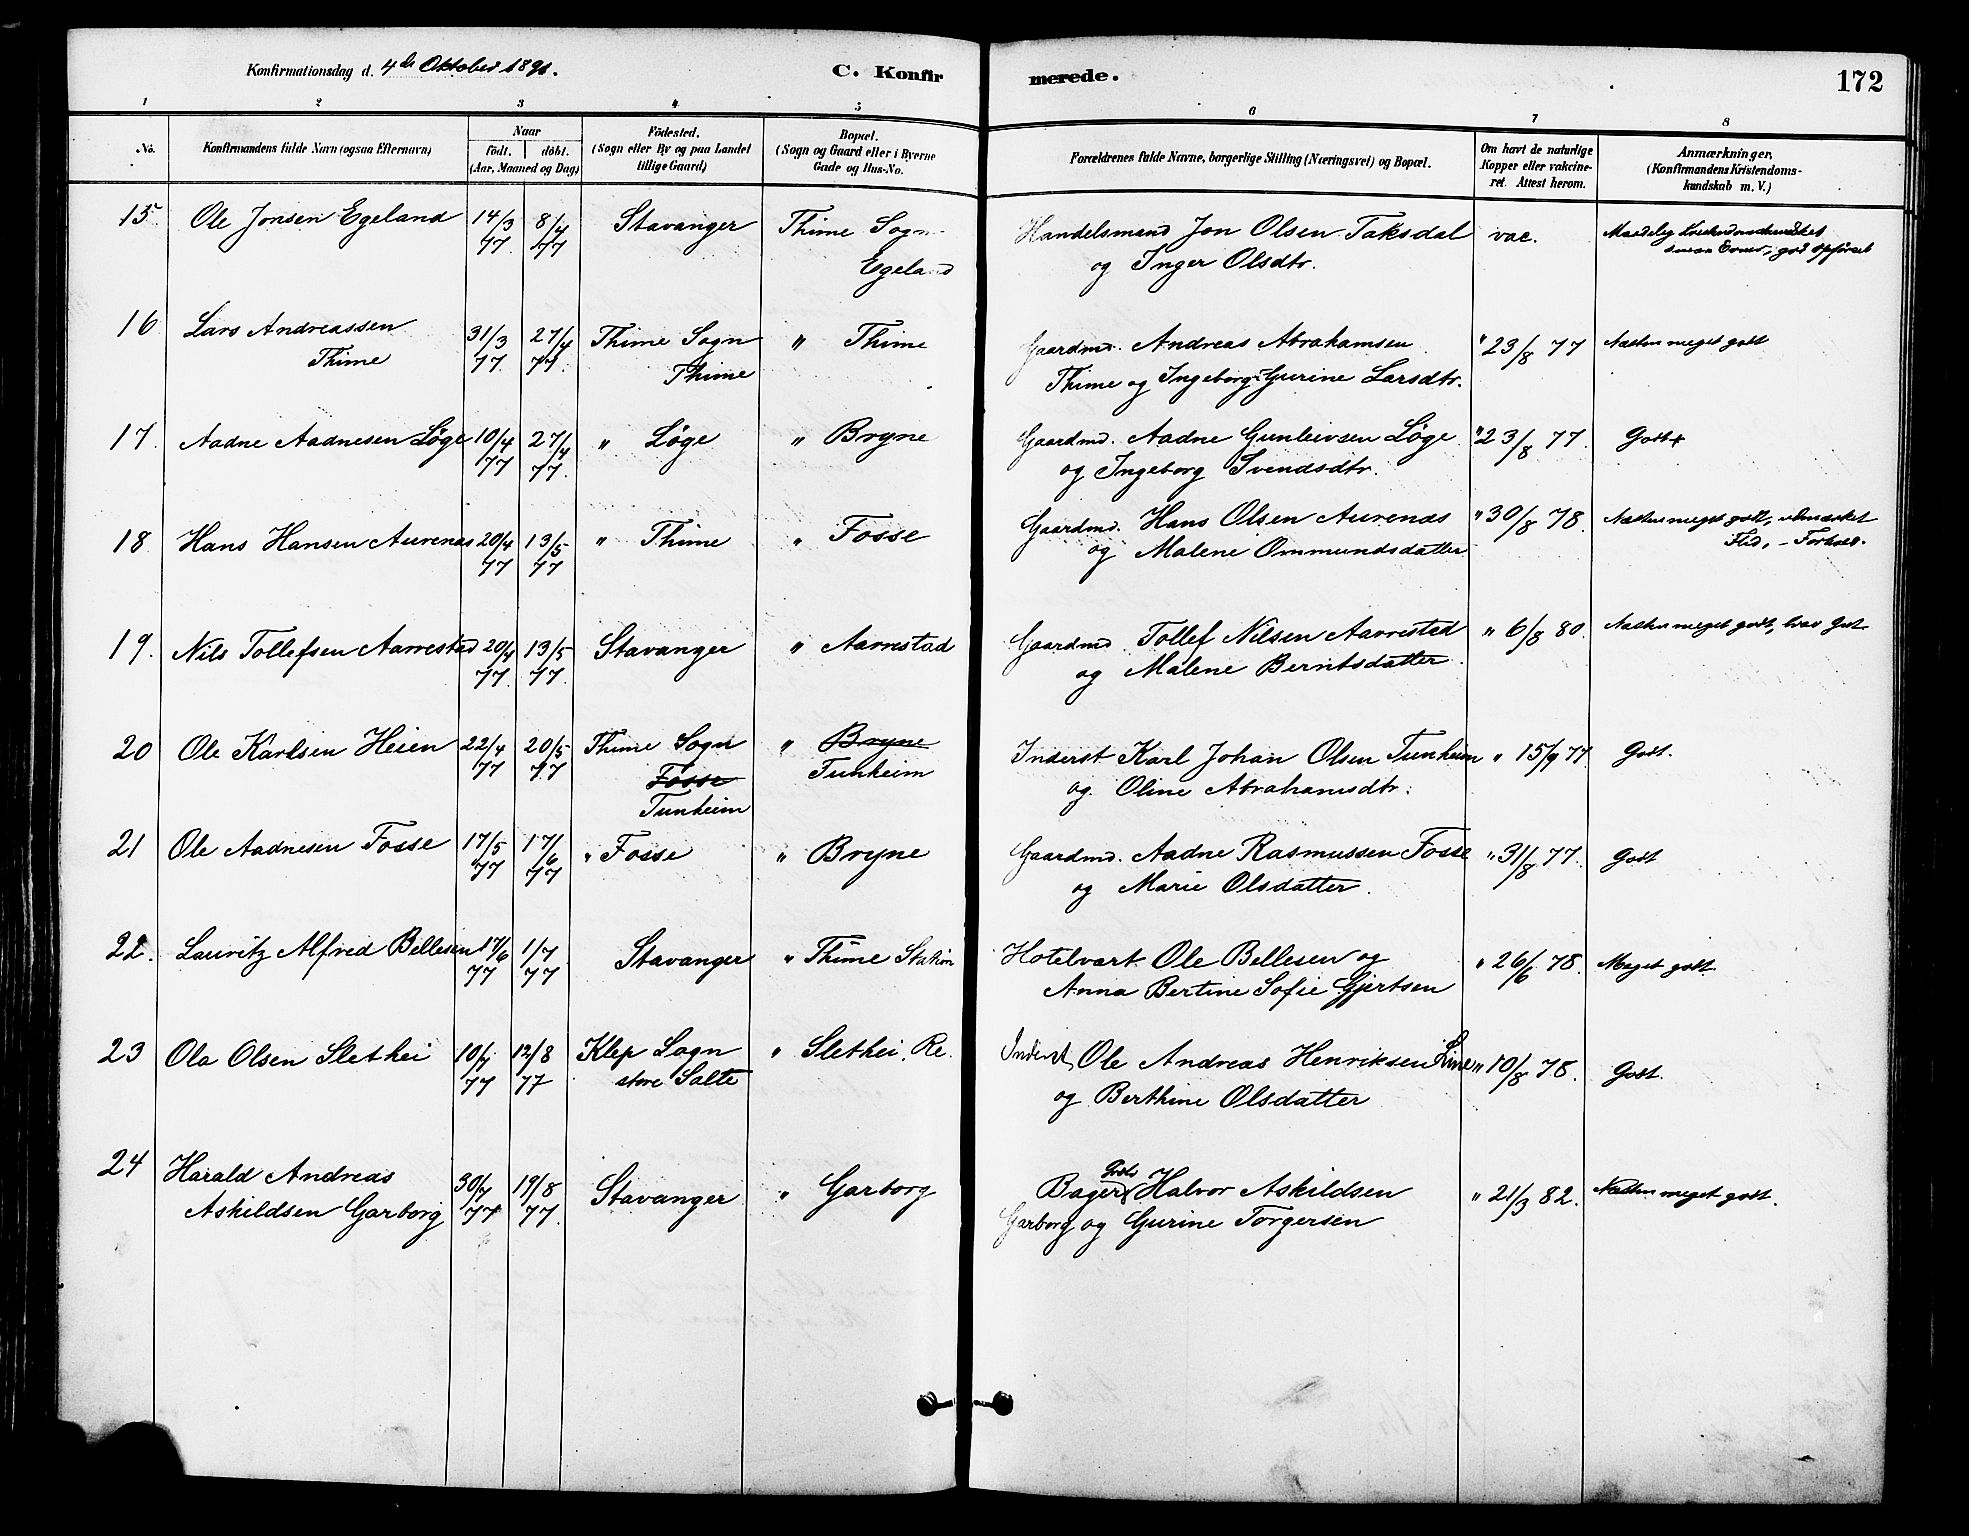 Konfirmationsdag d. 4de Oktober 1891. C. Konfirmerede. 172
1 2 3 4 5 6 7 8
No. Konfirmandens fulde Navn (ogsaa Efternavn)
Naar
födt. döbt.
(Aar, Maaned og Dag)
Födested.
(Sogn eller By og paa Landet
tillige Gaard)
Bopæl.
(Sogn og Gaard eller i Byerne
Gade og Hus-No.
Forældrenes fulde Navne, borgerlige Stilling (Næringsvei) og Bopæl.
Om havt de naturlige
Kopper eller vakcine-
ret. Attest herom.
Anmærkninger,
(Konfirmandens Kristendoms-
kundskab m. V.)
15 Ole Jonsen Egeland 14/3 77. 8/4 77 Stavanger Thime Sogn
Egeland
Handelsmand Jon Olsen Taksdal vac.
og Inger Olsdtr.
god Opførsel
16 Lars Andreassen
Thime
31/3 77. 27/4 77. Thime Sogn
Thime
" Thime
Gaardmd. Andreas Abrahamsen " 23/8 77 Næsten meget godt
Thime og Ingeborg Gurine Larsdtr.
17. Aadne Aadnesen Løge 10/4 77 27/4 77. " Løge " Bryne
Gaardmd. Aadne Gunleivsen Løge " 23/8 77. Godt
og Ingeborg Svendsdtr.
18 Hans Hansen Aurenas 20/4 77 13/5 77 " Thime " Fosse
Gaardmd. Hans Olsen Aurenæs " 30/8 78. Næsten meget godt, udmærket
og Malene Ommundsdatter Flid, - Forhold.
19. Nils Tollefsen Aarrestad 20/4 77. 13/5 77. Stavanger " Aarrestad
Gaardmd. Tollef Nilsen Aarrestad " 6/8 80. Næsten meget godt, brav Gut
og Malene Berntsdatter.
20 Ole Karlsen Heien 22/4 77 20/5 77 Thime Sogn " Bryne
Fosse Tunheim
Tunheim
Inderst Karl Johan Olsen Tunheim " 15/9 77 Godt.
og Oline Abrahamsdtr.
21 Ole Aadnesen Fosse 17/5 77 17/6 77 " Fosse " Bryne
Gaardmd. Aadne Rasmussen Fosse " 31/8 77. Godt
og Marie Olsdatter.
22. Lauritz Alfred Bellesen 17/6 77 1/7 77 Stavanger " Thime Station
Hotelvært Ole Bellesen og " 26/6 78. Meget godt
Anna Bertine Sofie Gjertsen
23 Ola Olsen Slethei 10/7 77 12/8 77 Klep Sogn " Slethei, Re.
store Salte
Inderst Ole Andreas Henriksen Line " 10/8 78. Godt.
og Berthine Olsdatter
24 Harald Andreas
Askildsen Garborg
30/7 77 19/8 77. Stavanger " Garborg
Bager Halvor Askildsen " 21/3 82. Næsten meget godt.
Garborg og Gurine Torgersen